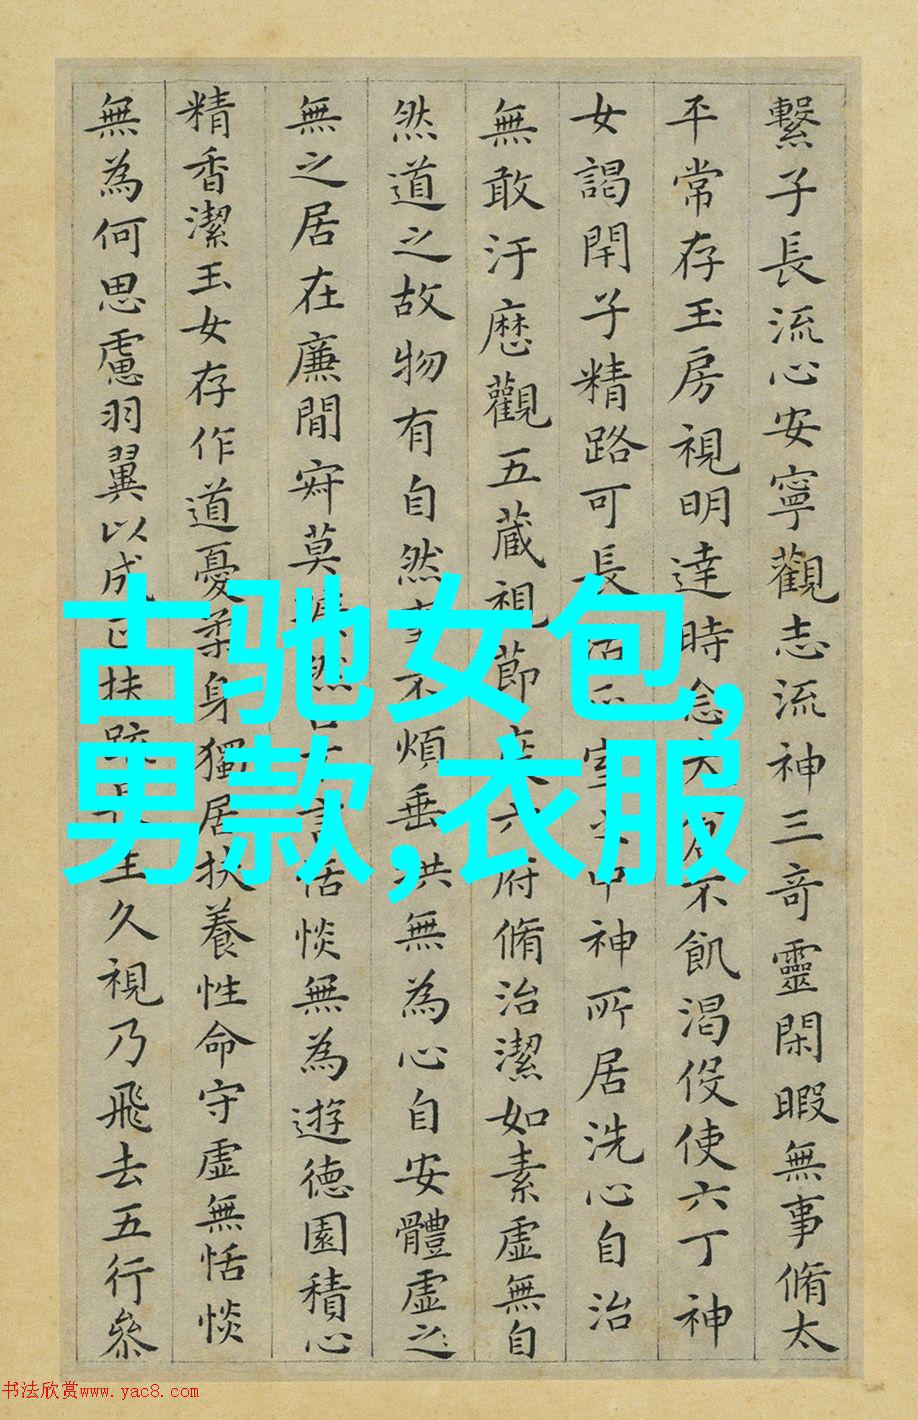 繫子長流心安寧觀志流神三奇靈閑暇無事脩太
平常存玉房視明達時念大不飢渴伇使六丁神
女謁閇子精路可長室中神所居洗心自治
無敢汙歷觀五藏視節度六府脩治潔如素虛無自
然道之故物有自然不煩垂拱無為心自安體虛之
無之居在廉間寂莫然言恬惔無為遊德園積心
精香潔玉女存作道憂柔身獨居扶養性命守虛無恬惔
無為何思慮羽翼以成正扶生久視乃飛去五行參
古驰女包,
男款,衣服
书法欣赏www.yac8.com